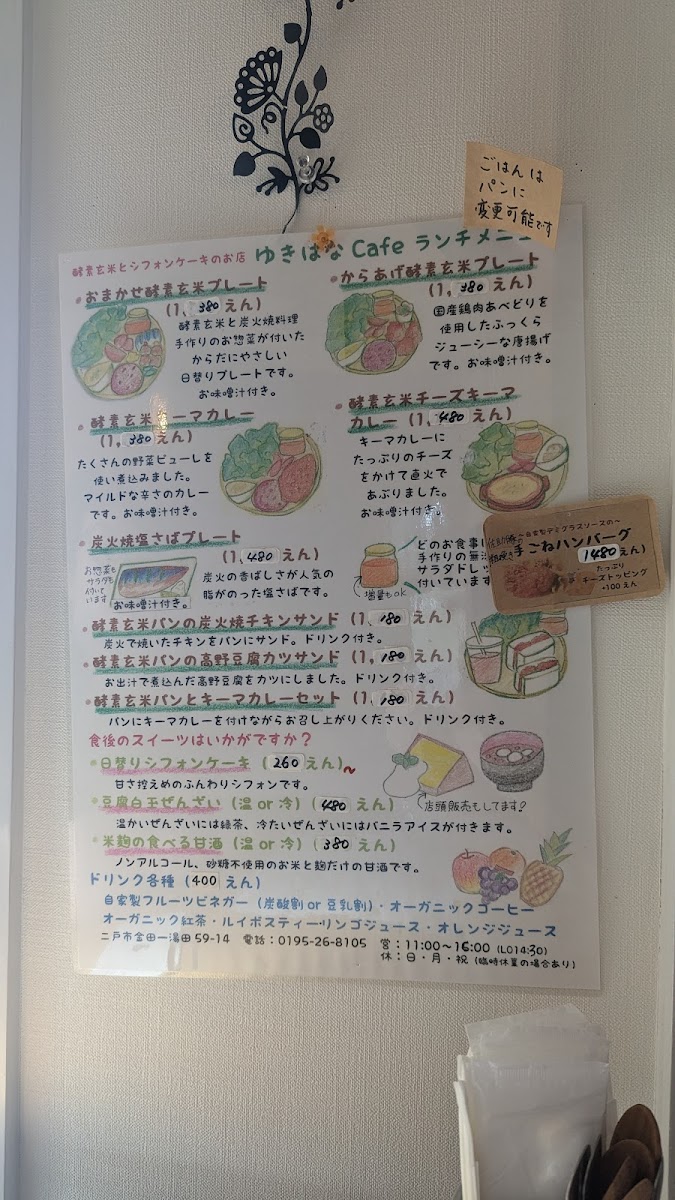 ごはんは
パンに
変更可能です
酵素玄米とシフォンケーキのお店 ゆきはな Cafe ランチメニ
・おまかせ酵素玄米プレート
(1,380えん)
酵素玄米と炭火焼料理
手作りのお惣菜が付いた
からだにやさしい
日替りプレートです。
お味噌汁付き。
・からあげ酵素玄米プレート
(1,380えん)
国産鶏肉あべどりを
使用したふっくら
ジューシーな唐揚げ
です。お味噌汁付き。
・酵素玄米キーマカレー
(1,380えん)
たくさんの野菜ピューレを
使い煮込みました。
マイルドな辛さのカレー
です。お味噌汁付き。
・酵素玄米チーズキーマ
カレー (1,480えん)
キーマカレーに
たっぷりのチーズ
をかけて直火で
あぶりました。
お味噌汁付き。
・炭火焼塩さばプレート
(1,480えん)
お惣菜と
サラダも
付いて
います
炭火の香ばしさが人気の
脂がのった塩さばです。
お味噌汁付き。
どのお食事
手作りの無
サラダドレ
付いています
増量もok
〜自家製デミグラスソースの〜
手ごねハンバーグ
1480えん)
たっぷり
チーズトッピング
+100えん
・酵素玄米パンの炭火焼チキンサンド (1,180えん)
炭火で焼いたチキンをパンにサンド。ドリンク付き。
・酵素玄米パンの高野豆腐カツサンド (1,180えん)
お出汁で煮込んだ高野豆腐をカツにしました。ドリンク付き。
・酵素玄米パンとキーマカレーセット (1,180えん)
パンにキーマカレーを付けながらお召し上がりください。ドリンク付き。
食後のスイーツはいかがですか?
・日替りシフォンケーキ (260えん)〜
甘さ控えめのふんわりシフォンです。
店頭販売もしてます?
・豆腐白玉ぜんざい (温 or 冷) (480えん)
温かいぜんざいには緑茶、冷たいぜんざいにはバニラアイスが付きます。
・米麹の食べる甘酒 (温 or 冷) (380えん)
ノンアルコール、砂糖不使用のお米と麹だけの甘酒です。
ドリンク各種 (400えん)
自家製フルーツビネガー (炭酸割 or 豆乳割)・オーガニックコーヒー
オーガニック紅茶・ルイボスティー・リンゴジュース・オレンジジュース
二戸市金田一湯田59-14 電話:0195-26-8105 営:11:00〜16:00 (LO14:30)
休:日・月・祝 (臨時休業の場合あり)